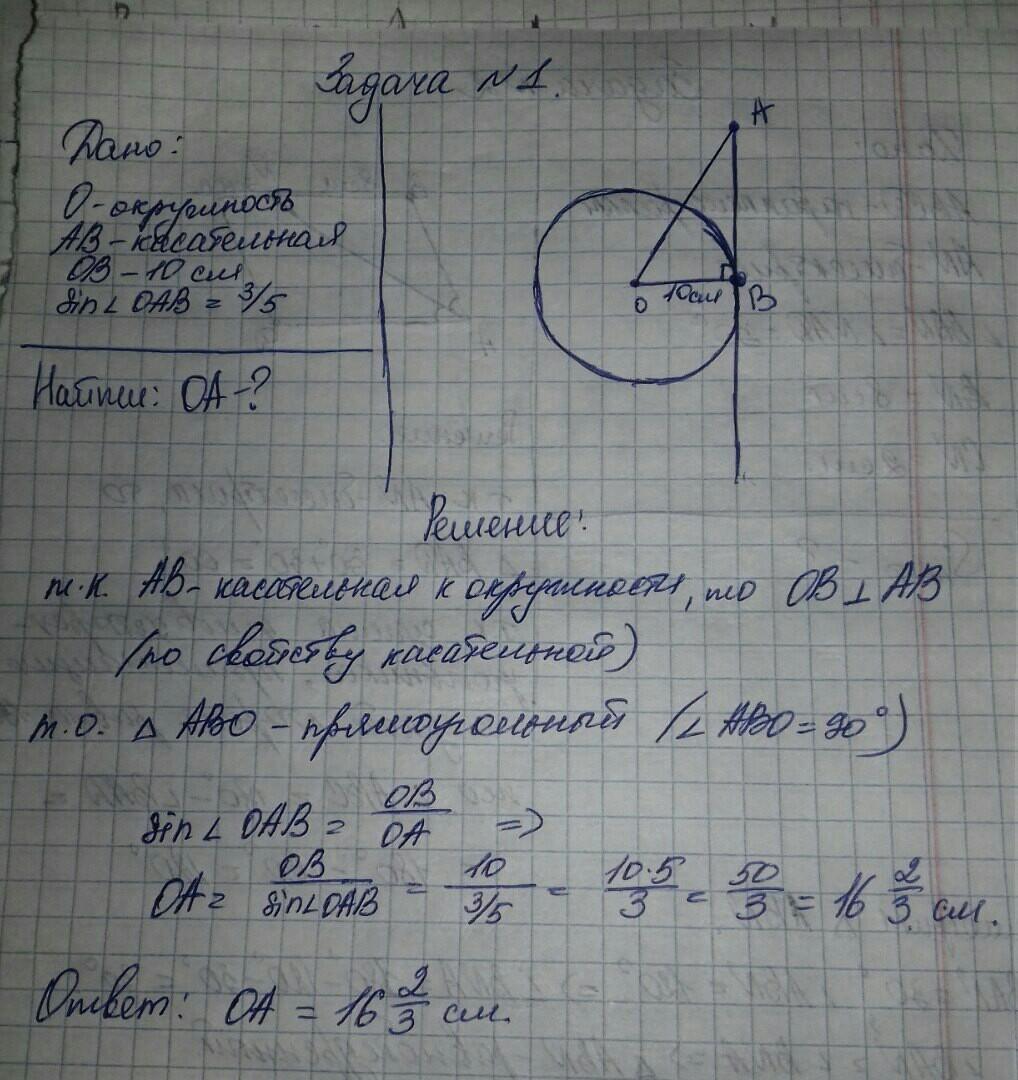 Задача N1.
Дано:
О-окружность
АВ-касательная
ОВ-10 см
sin∠OAB = 3/5
Найти: ОА-?
А
О
10см
В
Решение:
т.к. АВ-касательная к окружности, то ОВ⊥АВ
(по свойству касательной)
т.о. △АВО-прямоугольный (∠АВО=90°)
sin∠OAB = OB/OA =>
OA = OB/sin∠OAB = 10/3/5 = 10·5/3 = 50/3 = 16 2/3 см.
Ответ: ОА = 16 2/3 см.